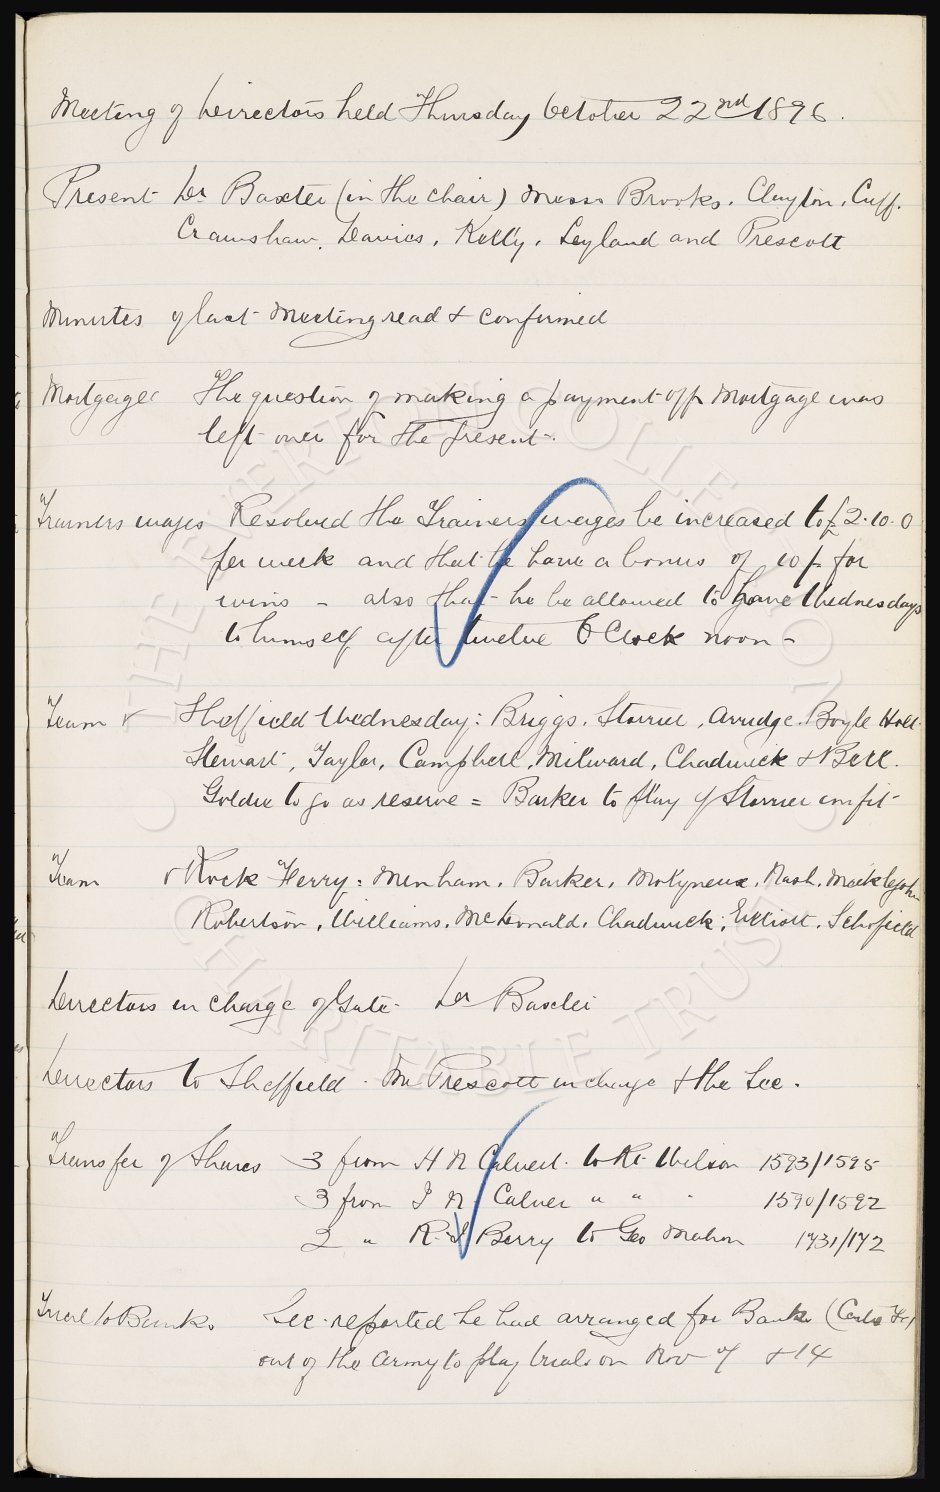 Meeting of Directors held Thursday October 22nd 1896.
Present Dr Baxter (in the chair) Messrs Brooks, Clayton, Cuff,
Crawshaw, Davies, Kelly, Leyland and Prescott
Minutes of last Meeting read & confirmed
Mortgage The question of making a payment off Mortgage was
left over for the present.
Trainers wages Resolved the Trainers wages be increased to £2.10.0
per week and that he have a bonus of 10/- for
wins - also that he be allowed to have Wednesdays
to himself after twelve O'Clock noon -
Team v Sheffield Wednesday: Briggs, Storrier, Arridge, Boyle Holt
Stewart, Taylor, Campbell, Milward, Chadwick & Bell.
Goldie to go as reserve = Barker to play if Storrier unfit
Team v Rock Ferry: Menham, Barker, Molyneux, Nash, Meiklejohn
Robertson, Williams, McDonald, Chadwick, Elliott, Schofield
Directors in charge of Gate - Dr Baxter
Directors to Sheffield - Mr Prescott in charge & the Sec.
Transfer of Shares 3 from H N Calvert to Wilson 1593/1595
3 from J N Calver " " " 1590/1592
2 " R. J. Berry to Geo Mahon 1731/172
Trial to Banks Sec. reported he had arranged for Banks
out of the Army to play trials on Nov 7 & 14
THE EVERTON COLLECTION
CHARITABLE TRUST